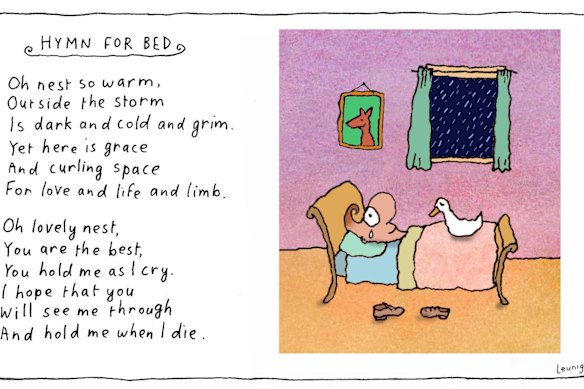 HYMN FOR BED
Oh nest so warm,
Outside the storm
Is dark and cold and grim.
Yet here is grace
And curling space
For love and life and limb.
Oh lovely nest,
You are the best,
You hold me as I cry.
I hope that you
Will see me through
And hold me when I die.